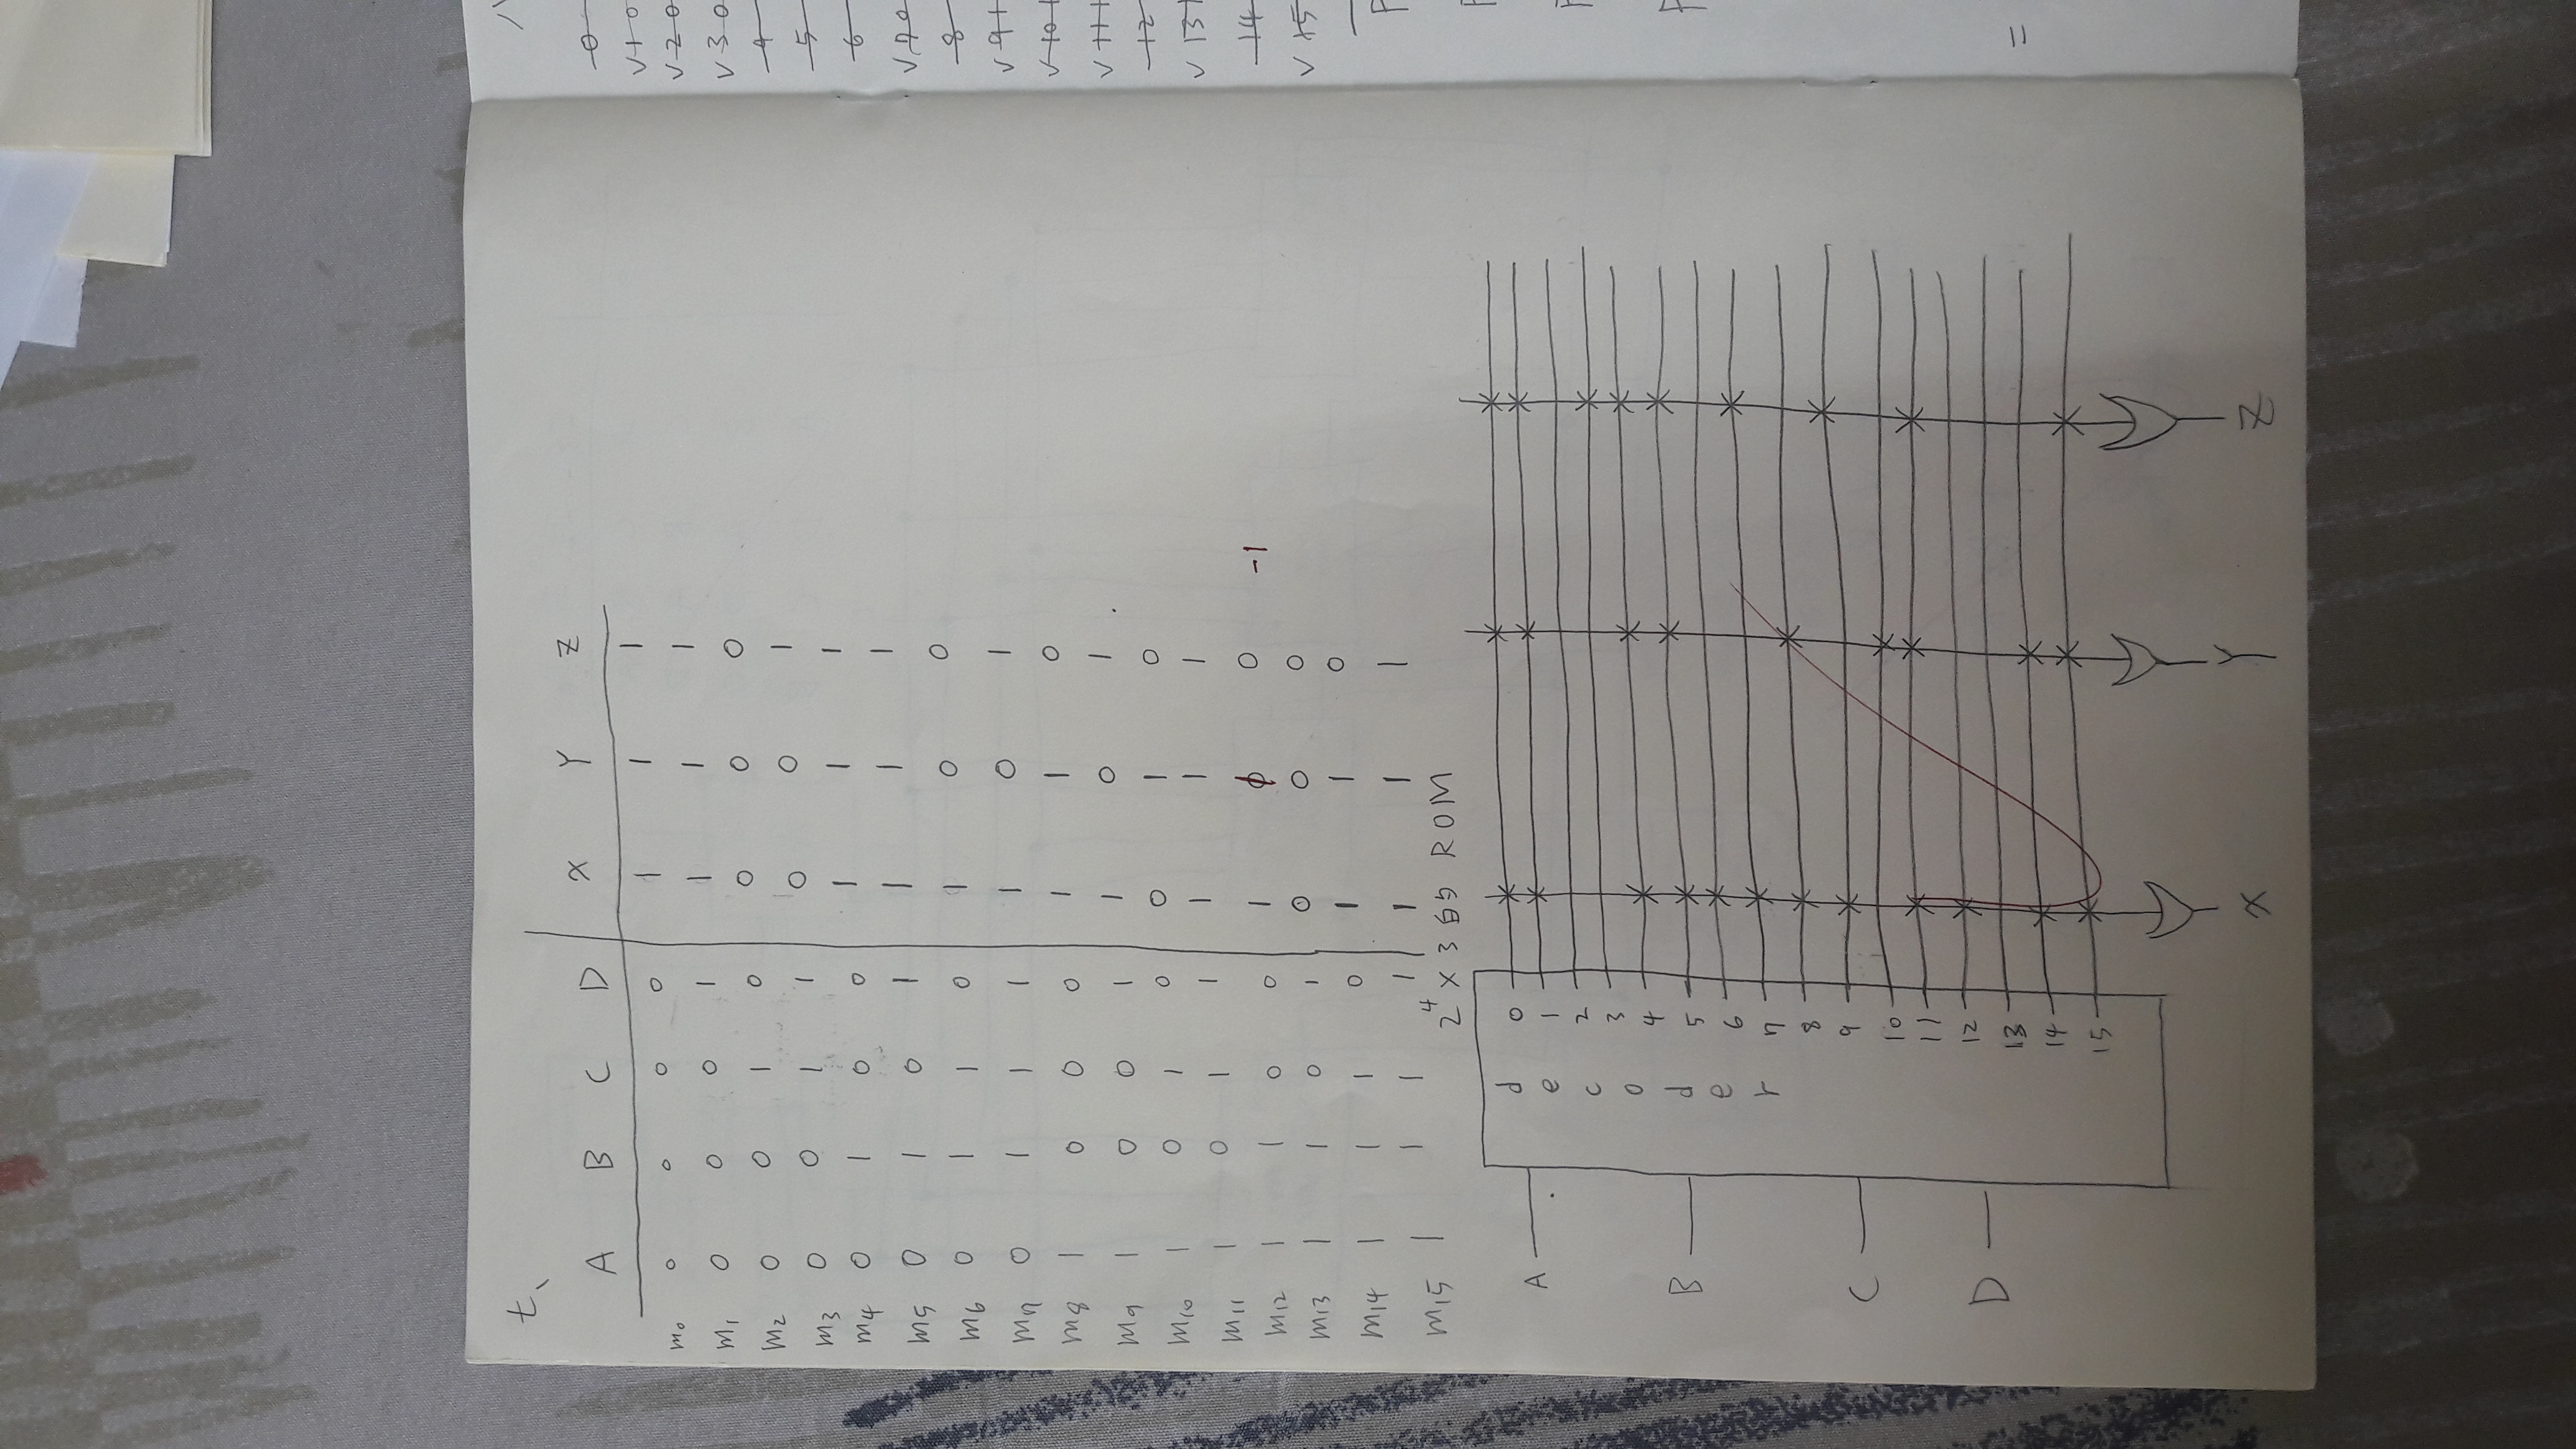 七、
A B C D X Y Z
m0 0 0 0 0 1 1 1
m1 0 0 0 1 1 1 1
m2 0 0 1 0 0 0 0
m3 0 0 1 1 0 0 1
m4 0 1 0 0 1 1 1
m5 0 1 0 1 1 1 1
m6 0 1 1 0 1 0 0
m7 0 1 1 1 1 0 1
m8 1 0 0 0 1 1 0
m9 1 0 0 1 1 0 1
m10 1 0 1 0 0 1 0
m11 1 0 1 1 1 1 1
m12 1 1 0 0 1 0 0 -1
m13 1 1 0 1 0 0 0
m14 1 1 1 0 1 1 0
m15 1 1 1 1 1 1 1
2^4 × 3 的 ROM
decoder
A
B
C
D
0
1
2
3
4
5
6
7
8
9
10
11
12
13
14
15
X Y Z
0
√ 1 0
√ 2 0
√ 3 0
4
5
6
√ 7 0
8
√ 9 1
√ 10 1
√ 11 1
12
√ 13 1
14
√ 15
=